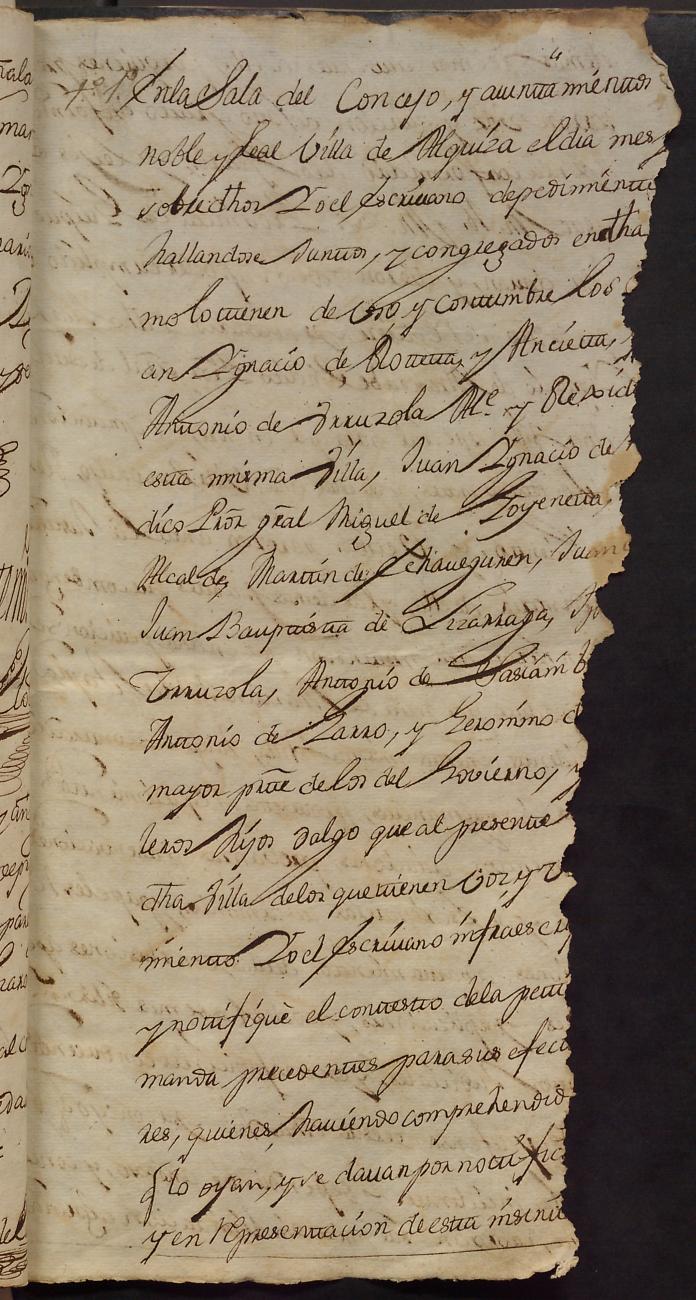 4
En la Sala del Concejo, y aiunttamienttos
noble y Leal Villa de Alquiza el dia mes y
sobredthos Yo el escrivano de pedimientto
hallandose Junttos, y congregados en dtha
mo lo ttienen de Vso y costtumbre los
an Ygnacio de Rotteta y Anciետta,
Anttonio de Yrruzola Alle y Resid
estta misma Villa, Juan Ygnacio de
dico Pror gral Miguel de Goyenetta,
Alcalde, Marttin de Echaveguren, Juan
Juan Bauptistta de Lizarraga,
Yrruzola, Anttonio de Sasiamb
Anttonio de Larro, y Geronimo d
mayor prtte de los del Govierno, y
leros Hijos dalgo que al presentte
dtha Villa de los que ttienen Voz y v
mientto Yo el Escrivano infraescri
y nottifiquè el conttestto de la petti
manda precedenttes para sus efect
res, quienes, haviendo comprehendid
q lo oyan, y se davan por nottific
y en representtacion de estta misma